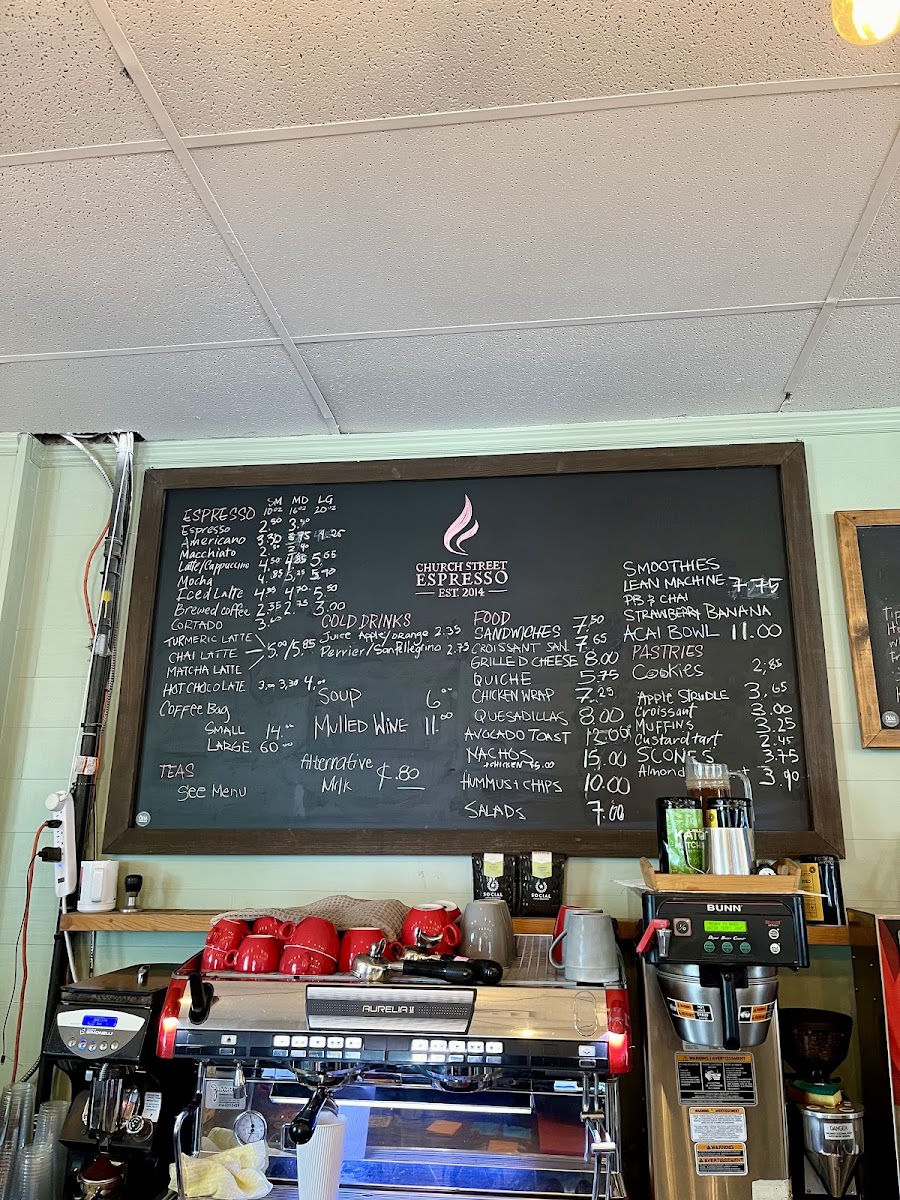 SM MD LG
10oz 16oz 20oz
ESPRESSO
Espresso 2.50 3.40
Americano 3.30 3.95 4.25
Macchiato 2.
Latte/Cappuccino 4.50 4.85 5.55
Mocha 4.85 5.25 5.90
Iced Latte 4.35 4.70 5.50
Brewed coffee 2.35 2.75 3.00
CORTADO 3.60
TURMERIC LATTE
CHAI LATTE 5.00/5.85
MATCHA LATTE
HOT CHOCOLATE 3.30 4.00
Coffee Bag
SMALL 14.00
LARGE 60.00
TEAS
See Menu
CHURCH STREET
ESPRESSO
EST. 2014
COLD DRINKS
Juice Apple/orange 2.35
Perrier/SanPellegrino 2.75
SOUP 6.00
MULLED WINE 11.00
Alternative
Milk ¢.80
FOOD
SANDWICHES 7.50
CROISSANT SAN. 7.65
GRILLED CHEESE 8.00
QUICHE 5.75
CHICKEN WRAP 7.25
QUESADILLAS 8.00
AVOCADO TOAST 12.00
NACHOS 15.00
+CHICKEN 5.00
HUMMUS + CHIPS 10.00
SALADS 7.00
SMOOTHIES
LEAN MACHINE 7.75
PB & CHAI
STRAWBERRY BANANA
ACAI BOWL 11.00
PASTRIES
Cookies 2.85
Apple STRUDLE 3.65
Croissant 3.00
MUFFINS 3.25
Custard tart 2.45
SCONES 3.75
Almond 3.90
SOCIAL
SOCIAL
MATCHA
BUNN
AURELIA II
SIMONELLI
WARNING
DANGER